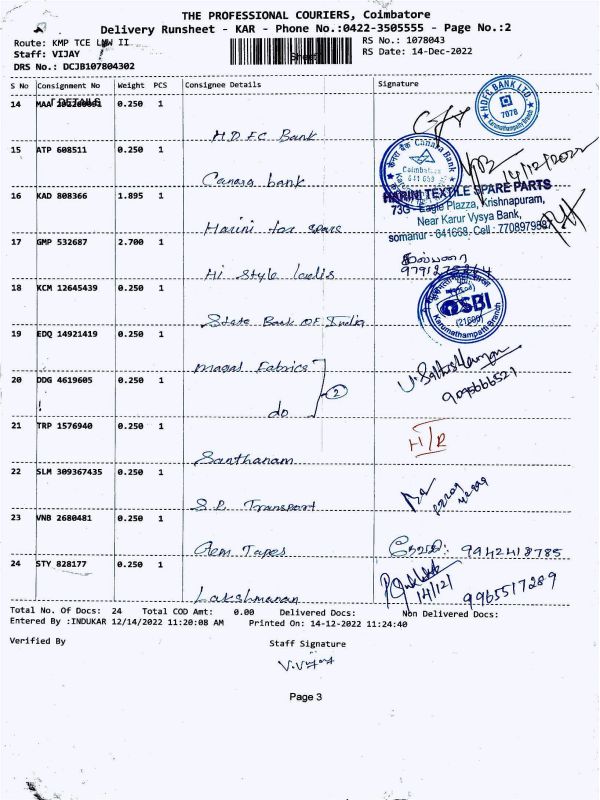 THE PROFESSIONAL COURIERS, Coimbatore
Delivery Runsheet - KAR - Phone No.:0422-3505555 - Page No.:2
Route: KMP TCE LNW II
RS No.: 1078043
Staff: VIJAY
Sheet
RS Date: 14-Dec-2022
DRS No.: DCJB107804302
S No Consignment No Weight PCS Consignee Details Signature
DETAILS
14 MAA 0.250 1
H.D.F.C. Bank
HDFC BANK LTD.
7078
Karumathampatti Branch
15 ATP 608511 0.250 1
Canara bank
Canara Bank
Coimbatore
641 659
14/12/2022
16 KAD 808366 1.895 1
Harini tex spares
HARINI TEXTILE SPARE PARTS
73G - Eagle Plazza, Krishnapuram,
Near Karur Vysya Bank,
somanur - 641668. Cell : 7708979987
17 GMP 532687 2.700 1
Hi style ladis
18 KCM 12645439 0.250 1
State Bank OF India
SBI
Karumathampatti Branch
19 EDQ 14921419 0.250 1
magal Fabrics
20 DDG 4619605 0.250 1
do
2
9095666521
21 TRP 1576940 0.250 1
Santhanam
H/R
22 SLM 309367435 0.250 1
S.P. Transport
23 VNB 2680481 0.250 1
Gem Tapes
9942418785
24 STY 828177 0.250 1
Lakshmanan
14/12/
9965517289
Total No. Of Docs: 24 Total COD Amt: 0.00 Delivered Docs: Non Delivered Docs:
Entered By :INDUKAR 12/14/2022 11:20:08 AM Printed On: 14-12-2022 11:24:40
Verified By
Staff Signature
V.Vijay
Page 3